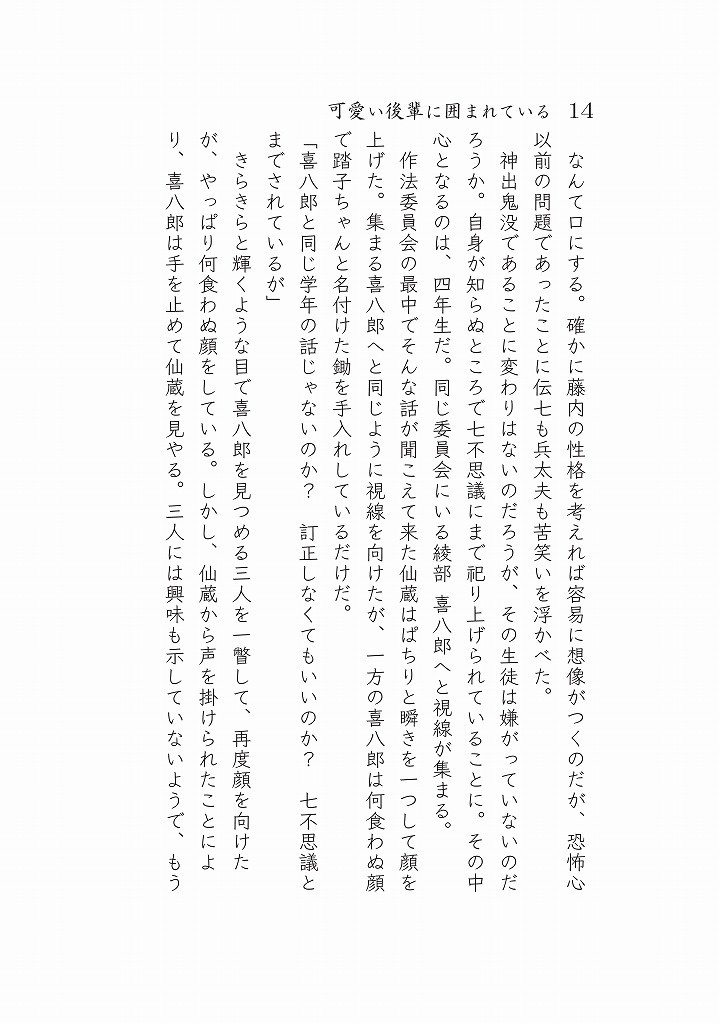 可愛い後輩に囲まれている 14
なんて口にする。確かに藤内の性格を考えれば容易に想像がつくのだが、恐怖心
以前の問題であったことに伝七も兵太夫も苦笑いを浮かべた。
　神出鬼没であることに変わりはないのだろうが、その生徒は嫌がっていないのだ
ろうか。自身が知らぬところで七不思議にまで祀り上げられていることに。その中
心となるのは、四年生だ。同じ委員会にいる綾部 喜八郎へと視線が集まる。
　作法委員会の最中でそんな話が聞こえて来た仙蔵はぱちりと瞬きを一つして顔を
上げた。集まる喜八郎へと同じように視線を向けたが、一方の喜八郎は何食わぬ顔
で踏子ちゃんと名付けた鋤を手入れしているだけだ。
「喜八郎と同じ学年の話じゃないのか？　訂正しなくてもいいのか？　七不思議と
までされているが」
　きらきらと輝くような目で喜八郎を見つめる三人を一瞥して、再度顔を向けた
が、やっぱり何食わぬ顔をしている。しかし、仙蔵から声を掛けられたことによ
り、喜八郎は手を止めて仙蔵を見やる。三人には興味も示していないようで、もう